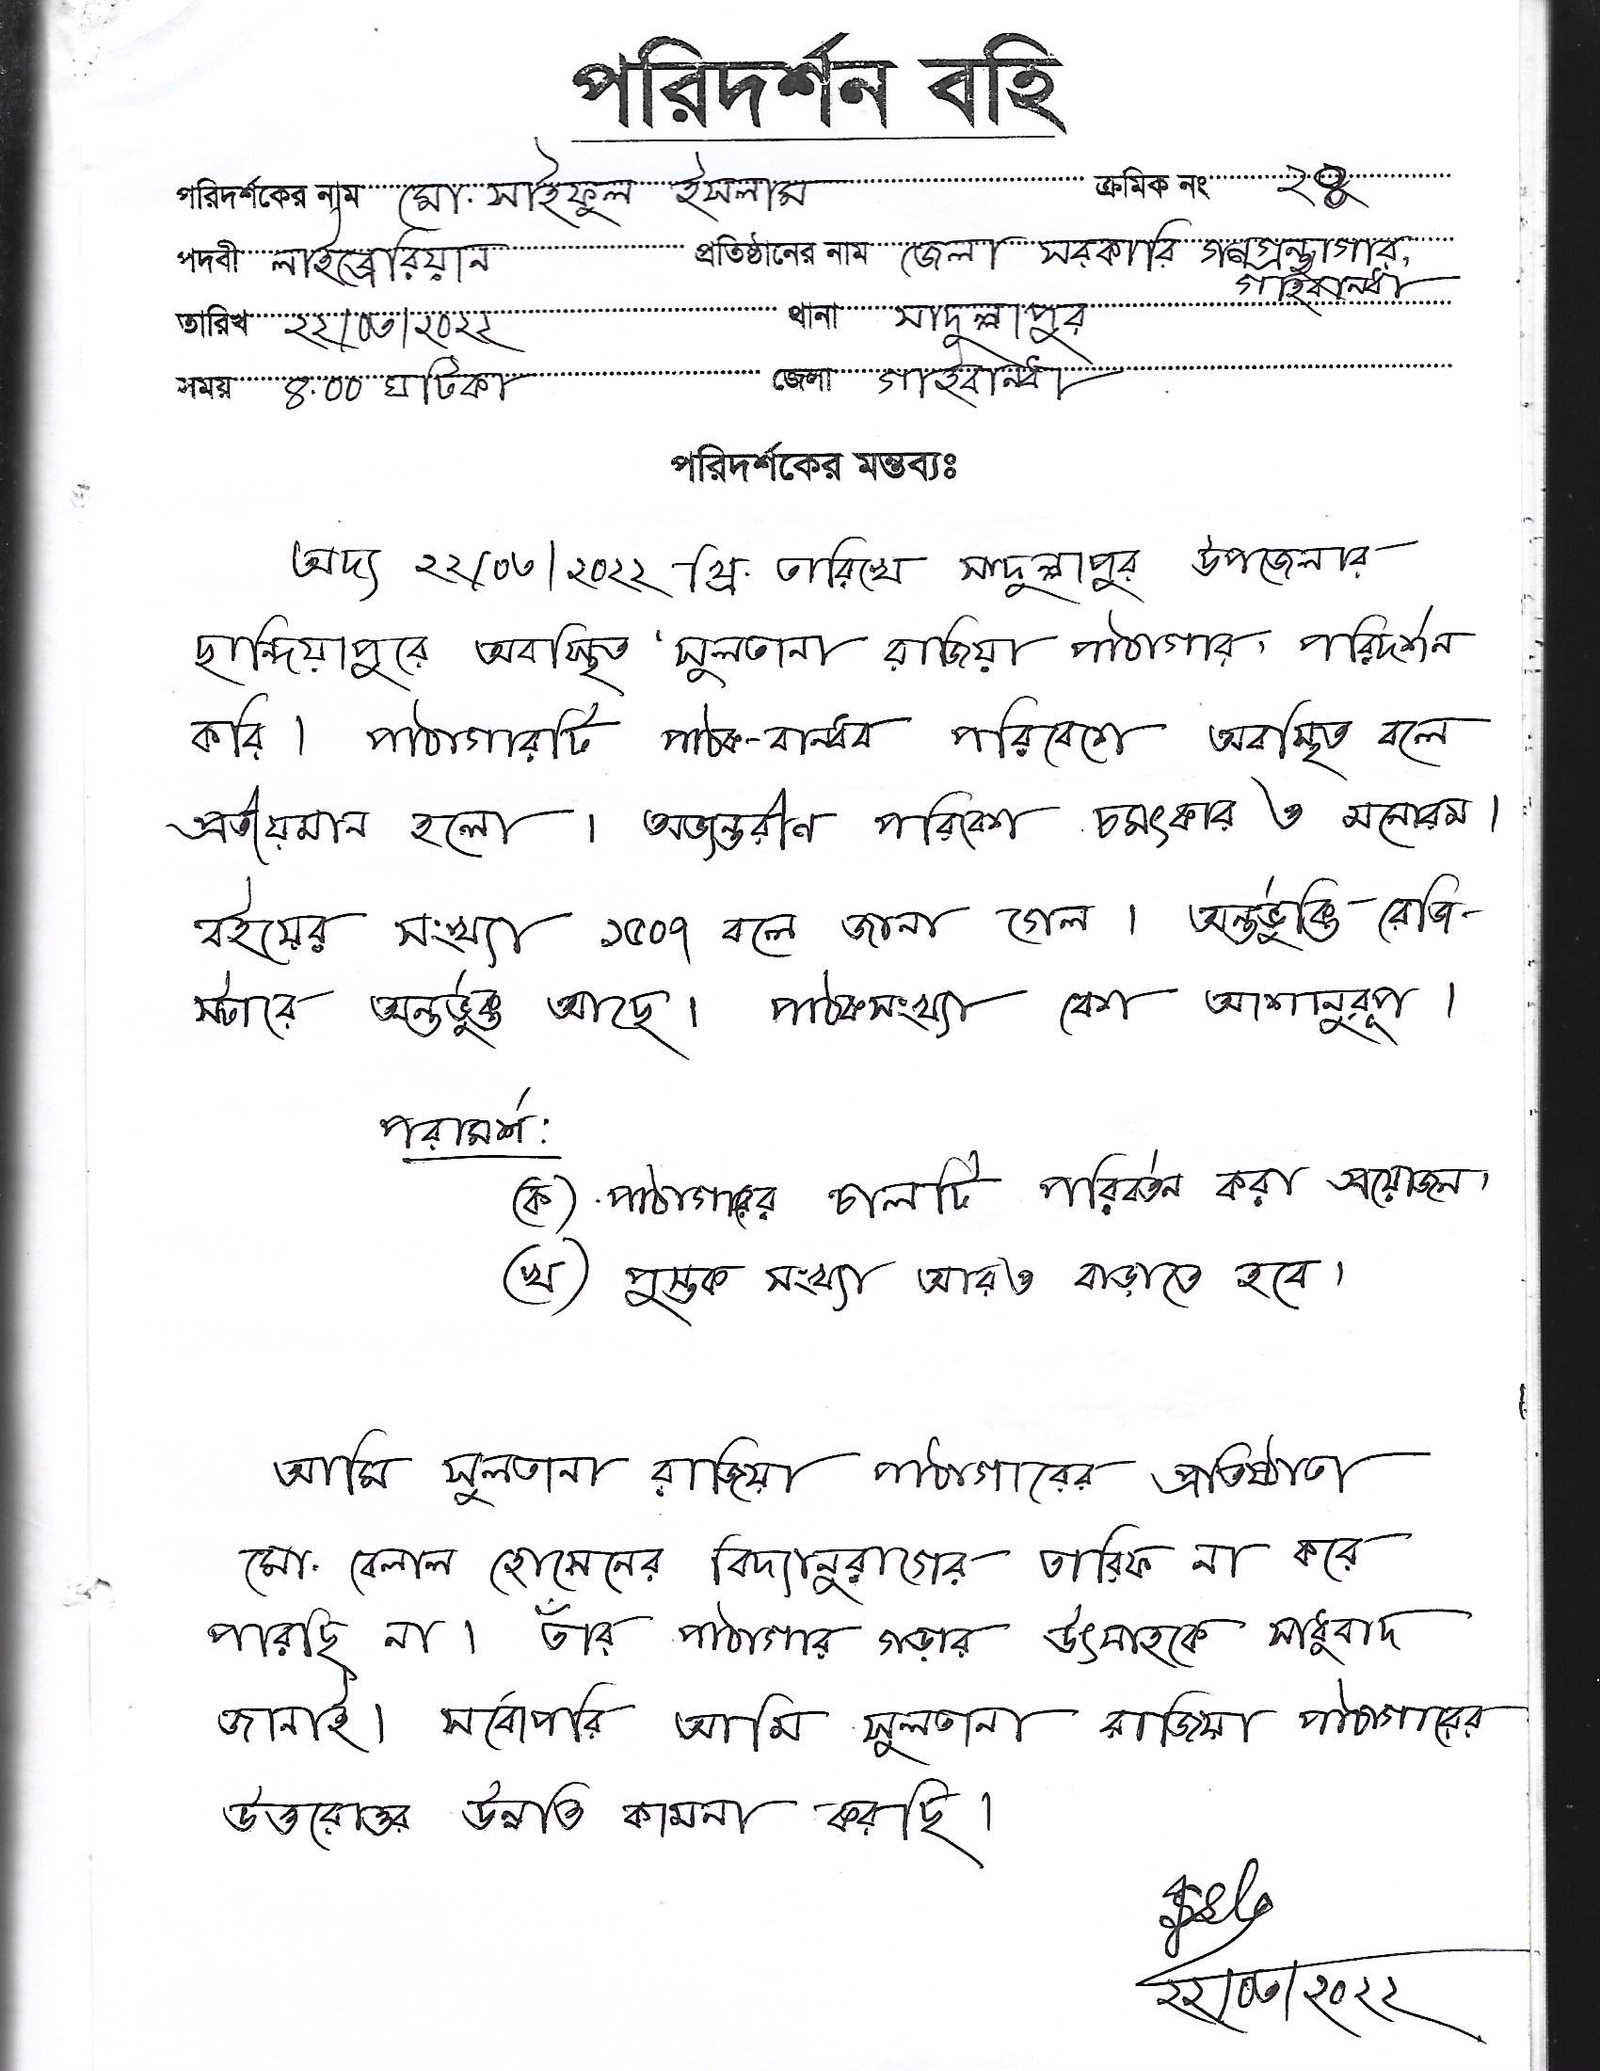 পরিদর্শন বহি
পরিদর্শকের নাম মো. সাইফুল ইসলাম ক্রমিক নং
পদবী লাইব্রেরিয়ান প্রতিষ্ঠানের নাম জেলা সরকারি গণগ্রন্থাগার,
গাইবান্ধা
তারিখ ২২/০৩/২০২২ থানা সাদুল্লাপুর
সময় ৪.০০ ঘটিকা জেলা গাইবান্ধা
পরিদর্শকের মন্তব্যঃ
অদ্য ২২/০৩/২০২২ খ্রি. তারিখে সাদুল্লাপুর উপজেলার
ছান্দিয়াপুরে অবস্থিত 'সুলতানা রাজিয়া পাঠাগার' পরিদর্শন
করি। পাঠাগারটি পাঠক-বান্ধব পরিবেশে অবস্থিত বলে
প্রতীয়মান হলো। অভ্যন্তরীণ পরিবেশ চমৎকার ও মনোরম।
বইয়ের সংখ্যা ১৫০৭ বলে জানা গেল। অন্তর্ভুক্তি রেজি-
স্টারে অন্তর্ভুক্ত আছে। পাঠকসংখ্যা বেশ আশানুরূপ।
পরামর্শ:
(ক) পাঠাগারের চালটি পরিবর্তন করা প্রয়োজন,
(খ) পুস্তক সংখ্যা আরও বাড়াতে হবে।
আমি সুলতানা রাজিয়া পাঠাগারের প্রতিষ্ঠাতা
মো. বেলাল হোসেনের বিদ্যানুরাগের তারিফ না করে
পারছি না। তাঁর পাঠাগার গড়ার উৎসাহকে সাধুবাদ
জানাই। সর্বোপরি আমি সুলতানা রাজিয়া পাঠাগারের
উত্তরোত্তর উন্নতি কামনা করছি।
২২/০৩/২০২২